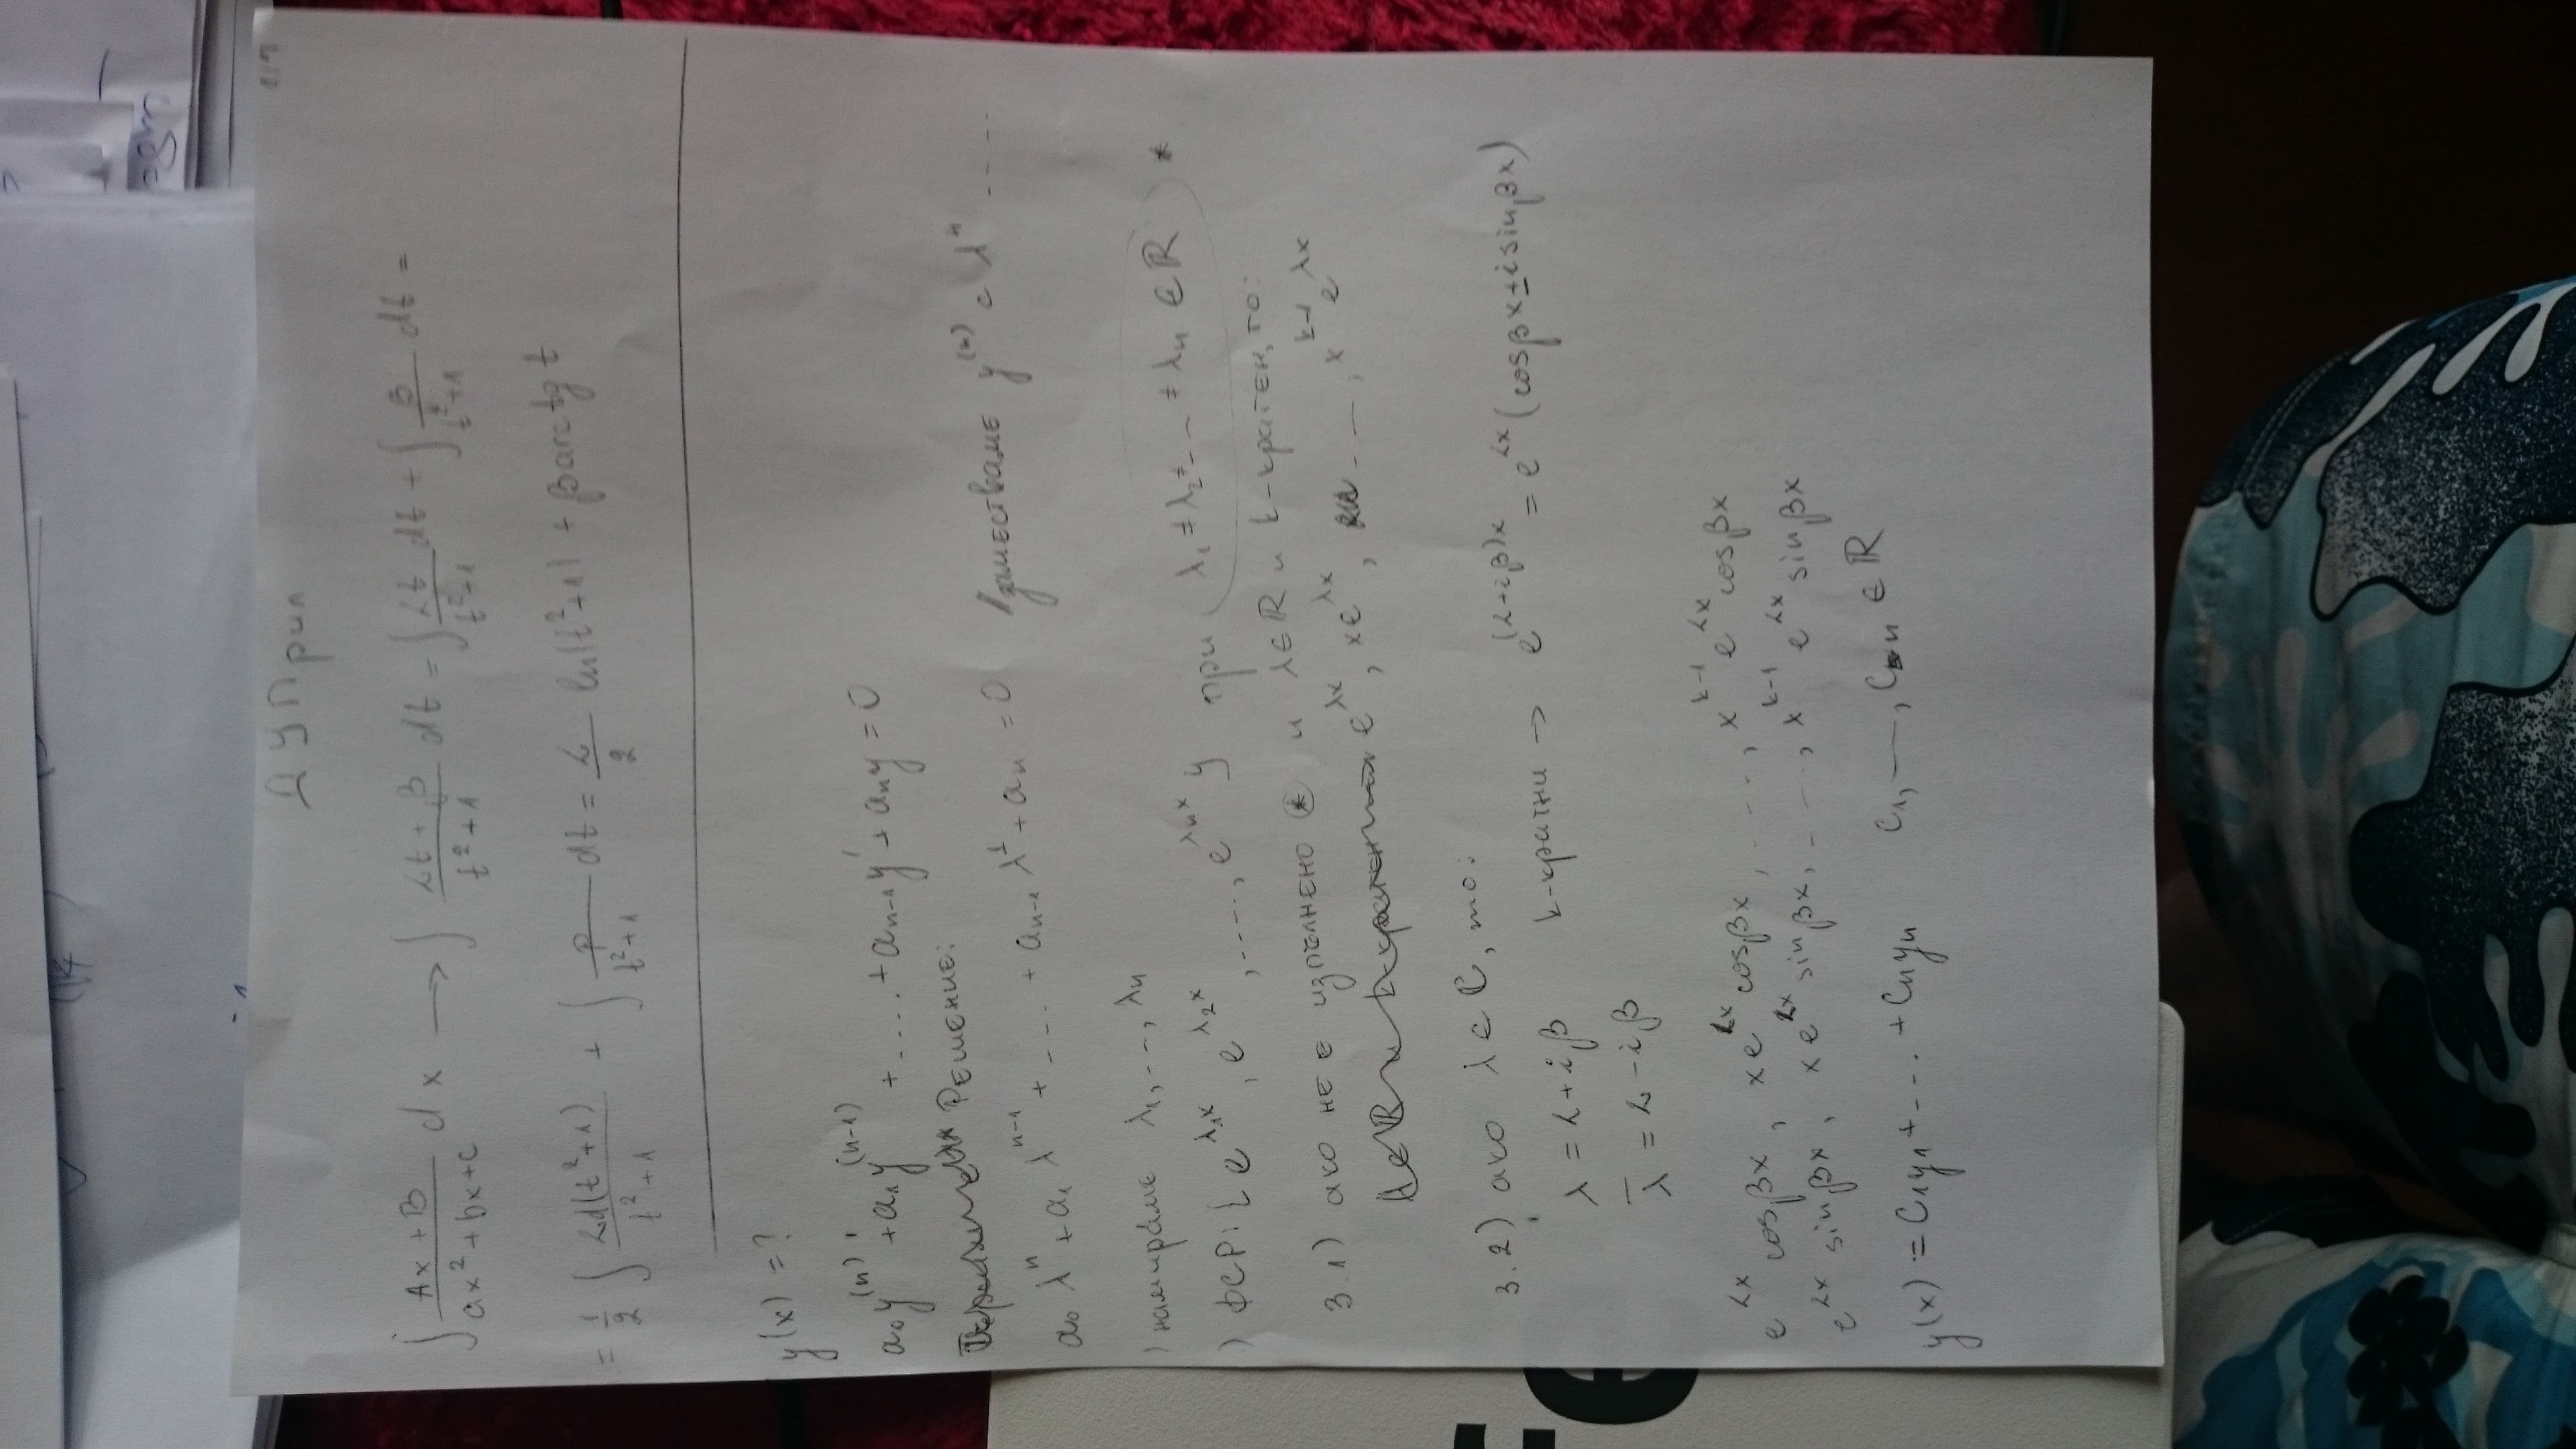 ДУПрил
∫ (Ax+B)/(ax²+bx+c) dx → ∫ (αt+β)/(t²+1) dt = ∫ αt/(t²+1) dt + ∫ β/(t²+1) dt =
= 1/2 ∫ αd(t²+1)/(t²+1) + ∫ β/(t²+1) dt = α/2 ln|t²+1| + β arctg t
y(x) = ?
a₀y⁽ⁿ⁾ + a₁y⁽ⁿ⁻¹⁾ + .... + aₙ₋₁y' + aₙy = 0
Решение:
a₀λⁿ + a₁λⁿ⁻¹ + .... + aₙ₋₁λ¹ + aₙ = 0 /заместваме y⁽ⁿ⁾ с λⁿ .....
) намираме λ₁, ..., λₙ
) ФСР: { e^(λ₁x), e^(λ₂x), ....., e^(λₙx) } при (λ₁ ≠ λ₂ ≠ ... ≠ λₙ ∈ ℝ) *
3.1) ако не е изпълнено ⊛ и λ∈ℝ и k-кратен, то:
e^(λx), xe^(λx), ..., x^(k-1) e^(λx)
3.2) ако λ ∈ ℂ, то:
λ = α + iβ k-кратни → e^((α+iβ)x) = e^(αx) (cosβx ± i sinβx)
λ̄ = α - iβ
e^(αx) cosβx, xe^(αx) cosβx, ...., x^(k-1) e^(αx) cosβx
e^(αx) sinβx, xe^(αx) sinβx, ...., x^(k-1) e^(αx) sinβx
y(x) := C₁y₁ + .... + Cₙyₙ C₁, —, Cₙ ∈ ℝ